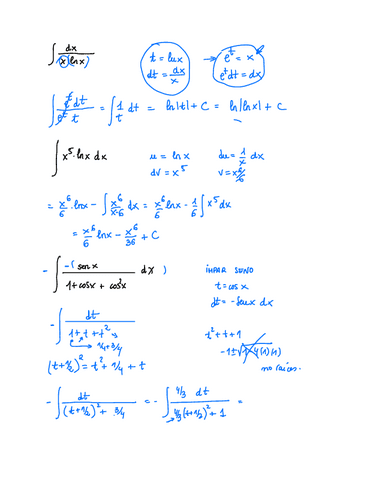 ∫ dx/(x lnx)   t = lnx   → e^t = x
dt = dx/x   e^t dt = dx
∫ e^t dt/(e^t t) = ∫ 1/t dt = ln|t| + C = ln|lnx| + C
∫ x^5 · lnx dx   u = lnx   du = 1/x dx
dv = x^5   v = x^6/6
= x^6/6 · lnx - ∫ x^6/(x·6) dx = x^6/6 lnx - 1/6 ∫ x^5 dx
= x^6/6 lnx - x^6/36 + C
- ∫ -( sen x/(1 + cosx + cos²x) dx )   IMPAR SENO
t = cos x
dt = -senx dx
- ∫ dt/(1 + t + t²)   t² + t + 1
1/4 + 3/4   -1 ± √1-4(1)(1)
(t + 1/2)² = t² + 1/4 + t   no raíces.
- ∫ dt/((t + 1/2)² + 3/4) = - ∫ 4/3 dt/(4/3 (t + 1/2)² + 1) =